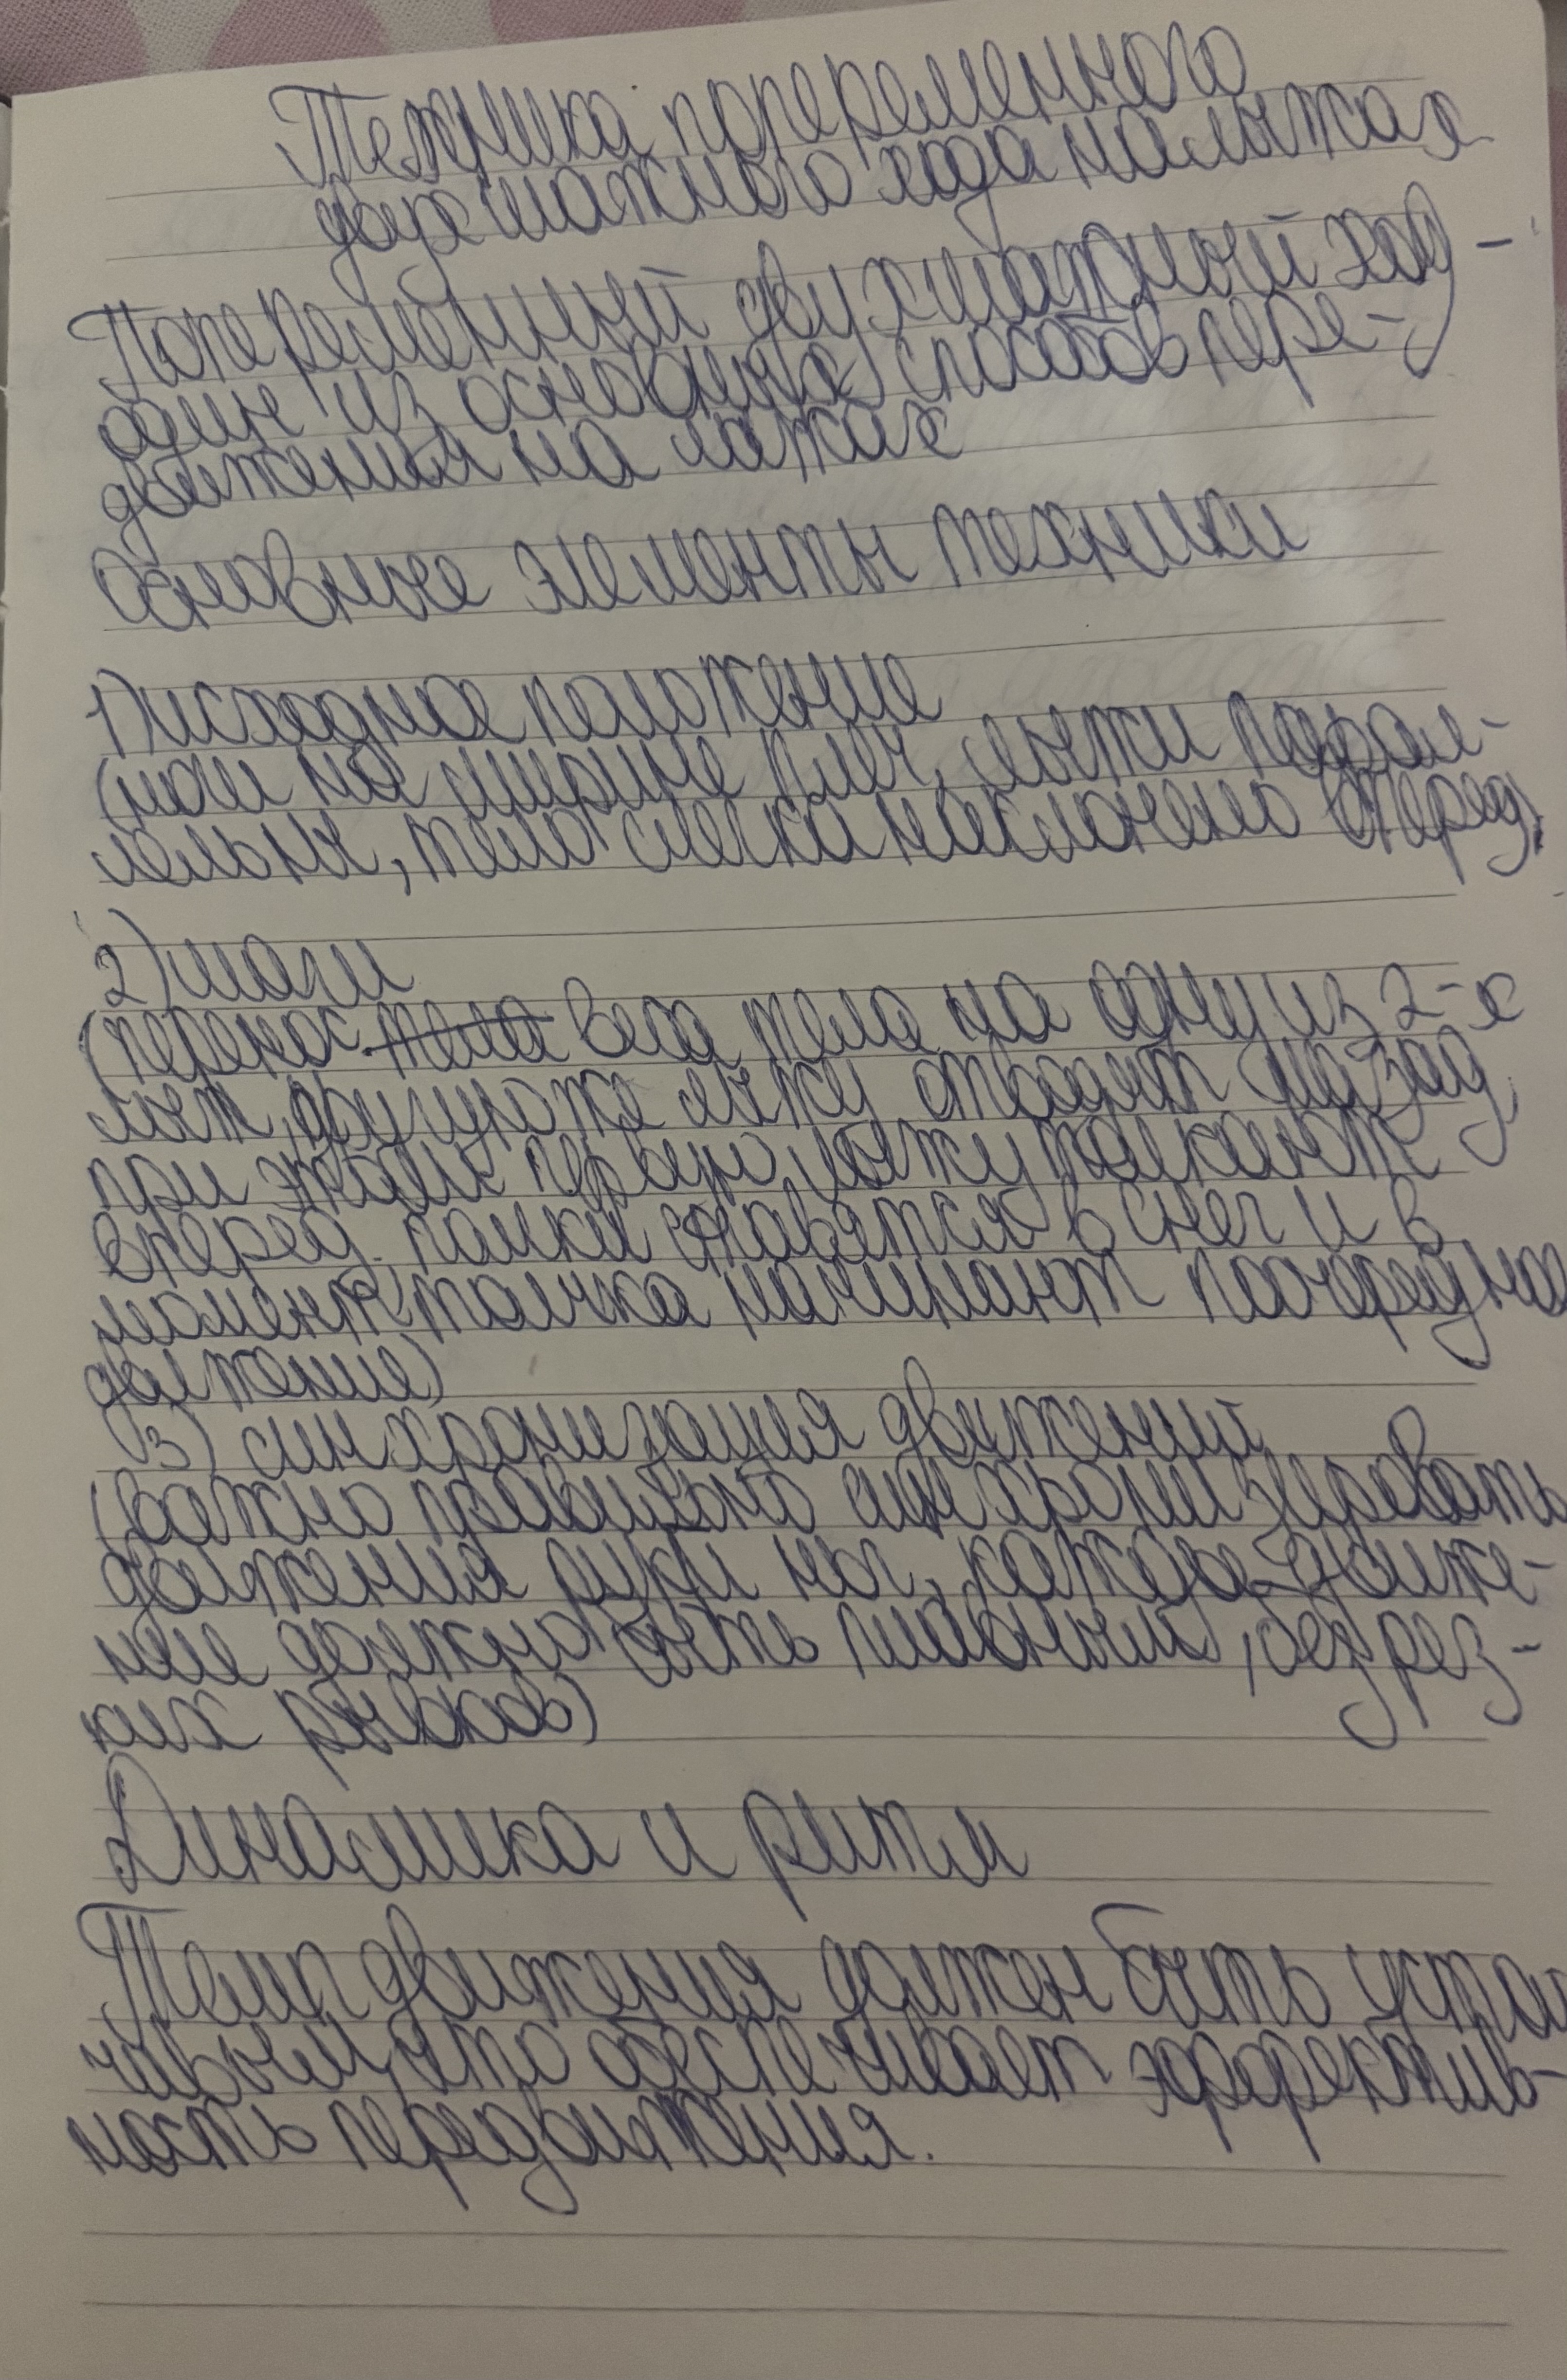 Техника попеременного
двухшажного хода на лыжах
Попеременный двухшажный ход -
один из основных способов пере-
движения на лыжах
Основные элементы техники
1) исходное положение
(ноги на ширине плеч, лыжи парал-
лельны, тело слегка наклонено вперед)
2) шаги
(перенос тела веса тела на одну из 2-х
лыж, другую же лыжу отводят назад,
при этом первую лыжу толкают
вперед. палки ставятся в снег и в
момент толчка начинают поочередное
движение)
3) синхронизация движений
(важно правильно синхронизировать
движения рук и ног, каждое движе-
ние должно быть плавным, без рез-
ких рывков)
Динамика и ритм
Темп движения должен быть устой
чивым, что обеспечивает эффектив-
ность передвижения.